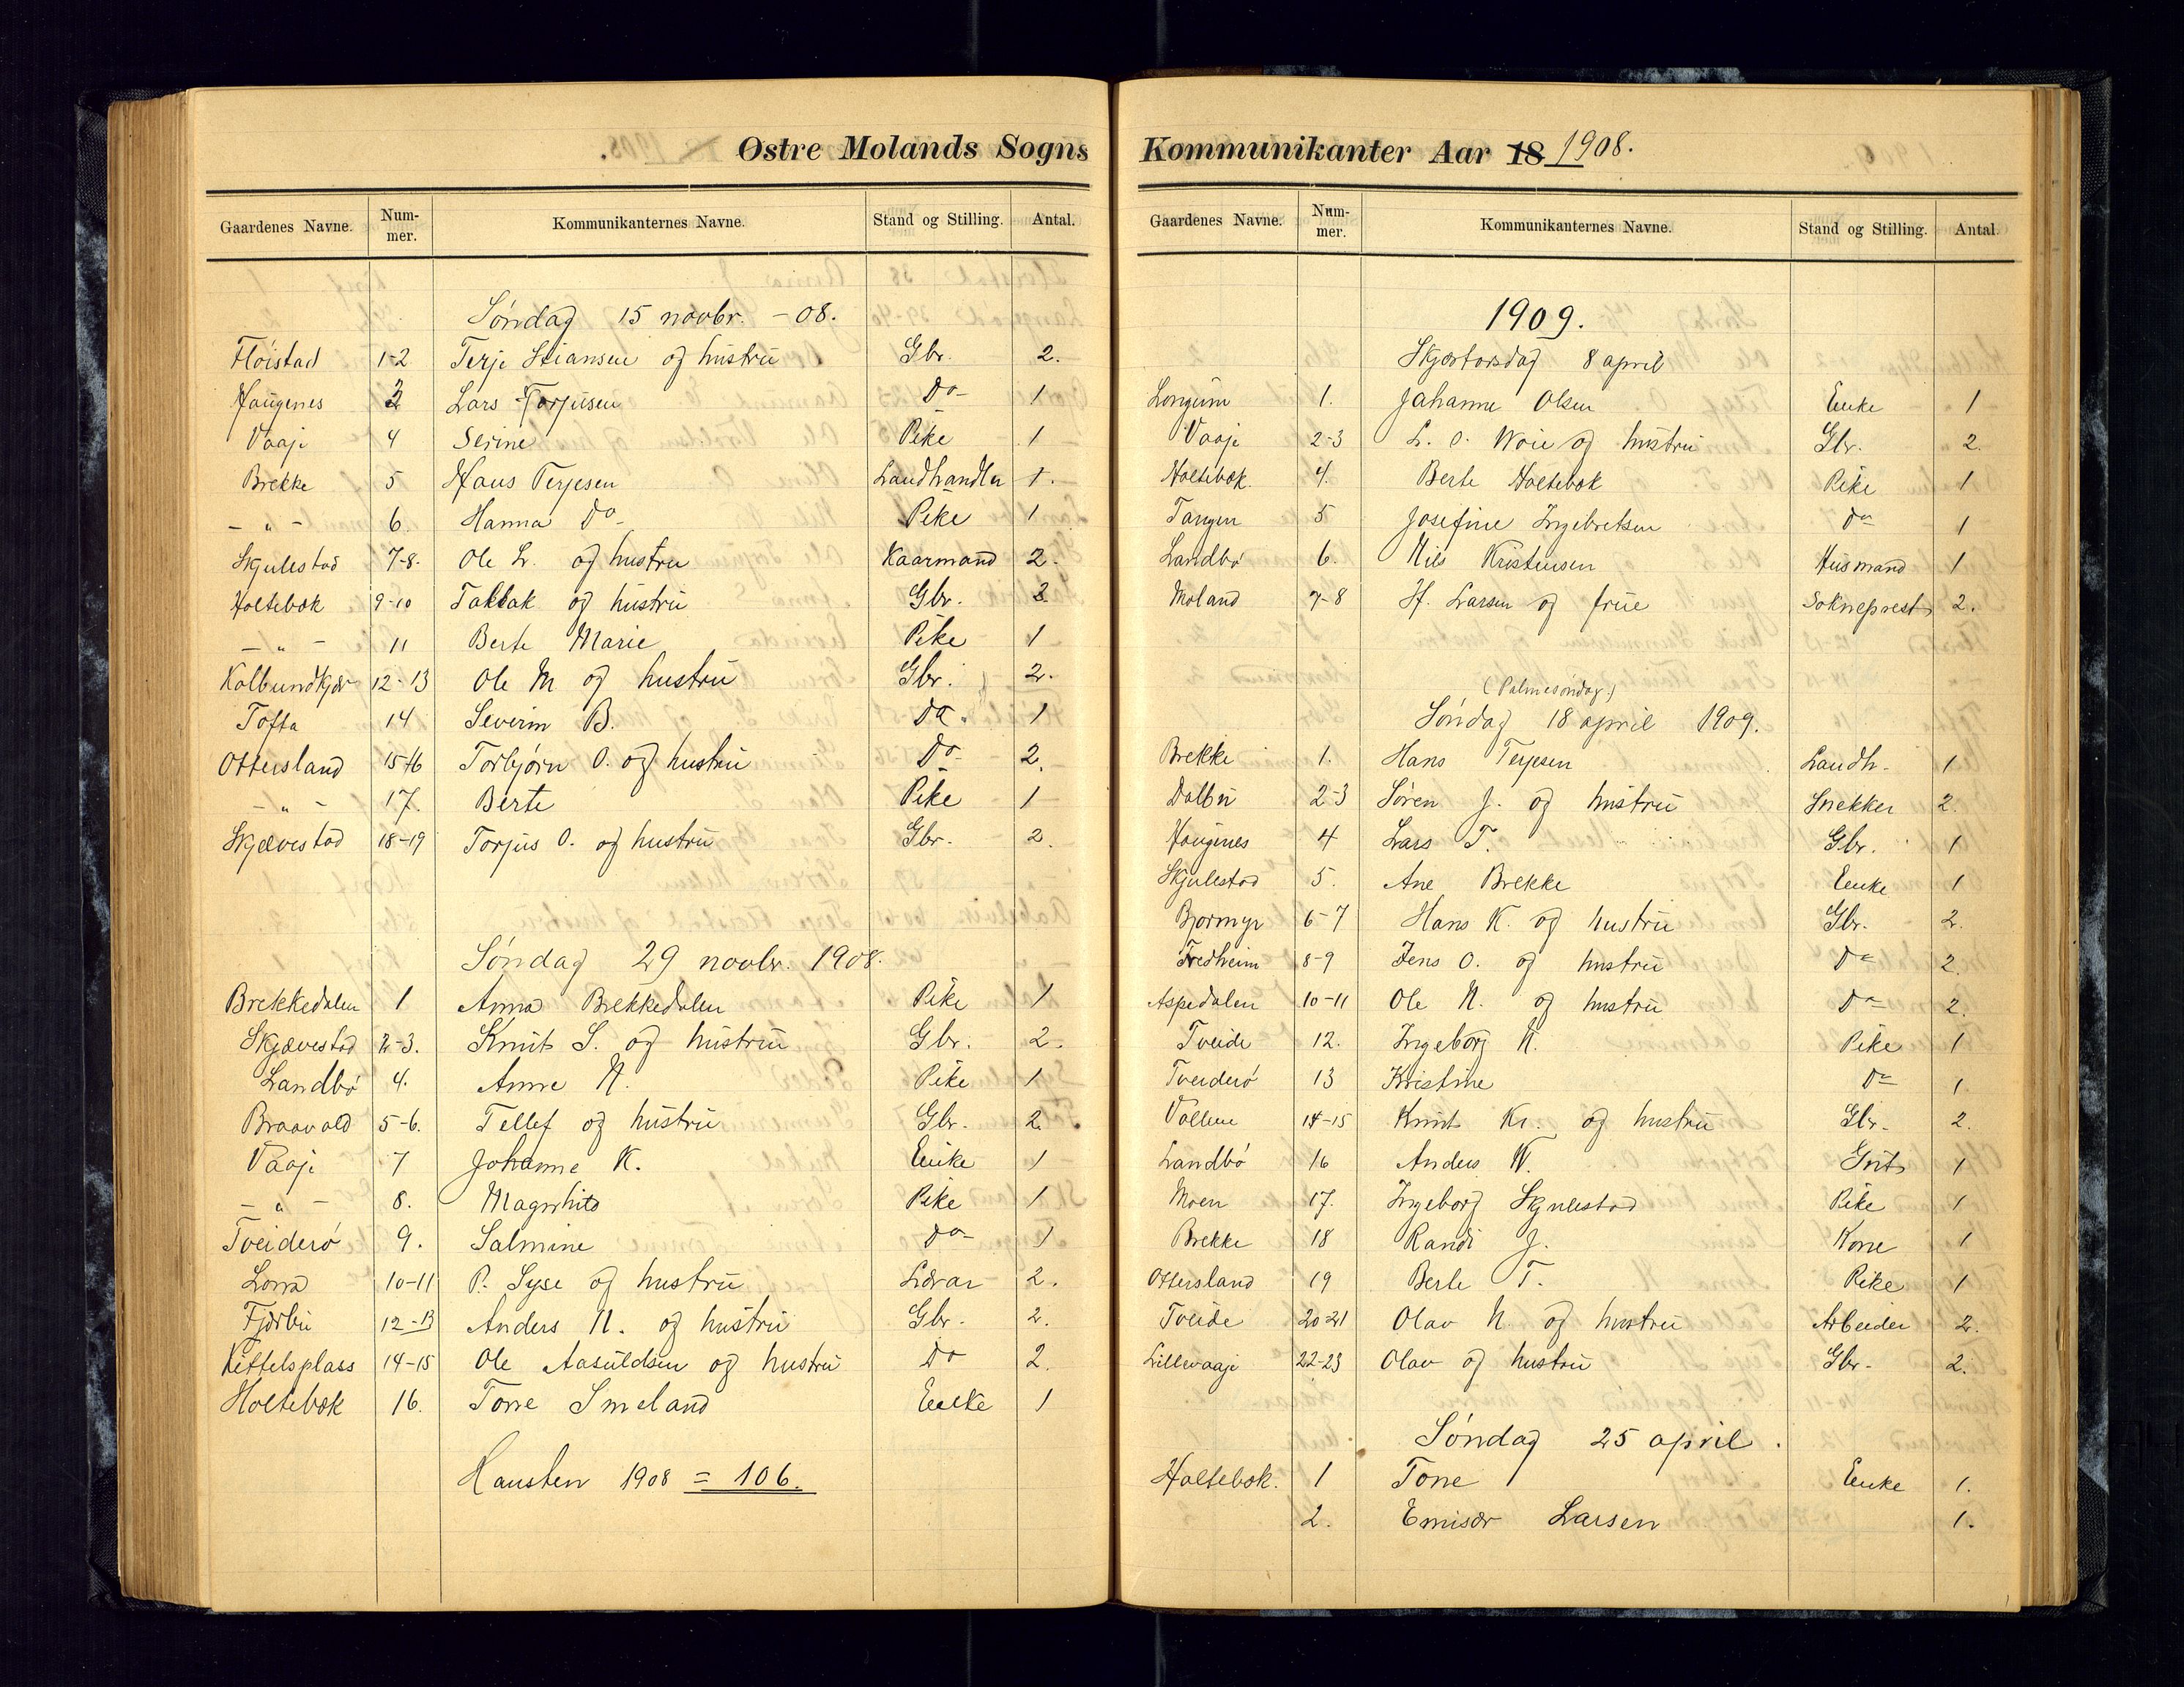 Østre Molands Sogns
Gaardenes Navne. Nummer. Kommunikanternes Navne. Stand og Stilling. Antal.
Søndag 15 novbr. - 08.
Fløistad 1-2 Terje Stiansen og hustru Gbr. 2.
Haugenes 3 Lars Torjusen Do 1
Vaaje 4 Serine Pike 1
Brekke 5 Hans Terjesen Landhandler 1.
- " - 6. Hanna Do Pike 1
Skjulestad 7-8. Ole L. og hustru Kaarmand 2.
Holtebæk 9-10 Tallak og hustru Gbr. 2.
- " - 11 Berte Marie Pike 1
Kalbundkjær 12-13 Ole M og hustru Gbr. 2.
Tofta 14 Severin B. Do. 1
Ottersland 15-16 Torbjørn O. og hustru Do 2.
- " - 17. Berte Pike 1
Skjævestad 18-19 Torjus O. og hustru Gbr. 2.
Søndag 29 novbr. 1908.
Brekkedalen 1 Anna Brekkedalen Pike 1
Skjævestad 2-3. Knut S. og hustru Gbr. 2.
Landbø 4. Anne N. Pike 1
Braavold 5-6. Tellef og hustru Gbr. 2.
Vaaje 7 Johanne K. Enke 1
- " - 8. Magnhild Pike 1
Tveiderø 9. Salmine Do 1
Lona 10-11 P. Syse og hustru Lærar 2.
Fjærbu 12-13 Anders N. og hustru Gbr. 2.
Kittelsplass 14-15 Ole Aasuldsen og hustru Do 2.
Holtebæk 16. Tone Smeland Enke 1
Hausten 1908 = 106.
Kommunikanter Aar 18 1908.
Gaardenes Navne. Nummer. Kommunikanternes Navne. Stand og Stilling. Antal.
1909.
Skjærtorsdag 8 april
Longum 1. Johanne Olsen Enke 1
Vaaje 2-3 L. O. Woie og hustru Gbr. 2.
Holtebæk. 4. Berte Holtebæk Pike 1
Tangen 5 Josefine Ingebretsen Do 1
Landbø 6. Nils Kristensen Husmand 1
Moland 7-8 H. Larsen og frue Sokneprest 2.
(Palmesøndag.)
Søndag 18 april 1909.
Brekke 1. Hans Terjesen Landh. 1
Dalbu 2-3 Søren J. og hustru Snekker 2.
Haugenes 4 Lars T. Gbr. 1
Skjulestad 5. Ane Brekke Enke 1
Bjormyr 6-7 Hans K. og hustru Gbr. 2.
Fredheim 8-9 Jens O. og hustru Do 2.
Aspedalen 10-11 Ole N. og hustru Do 2.
Tveide 12. Ingeborg N. Pike 1
Tveiderø 13 Kristine Do 1.
Vollene 14-15 Knut Kr. og hustru Gbr. 2.
Landbø 16 Anders N. Gut 1
Moen 17. Ingeborg Skjulestad Pike 1
Brekke 18 Randi J. Kone 1
Ottersland 19 Berte T. Pike 1
Tveide 20-21 Olav N. og hustru Arbeider 2.
Lillevaaje 22-23 Olav og hustru Gbr. 2.
Søndag 25 april.
Holtebæk. 1 Tone Enke 1.
2. Emisær Larsen 1.